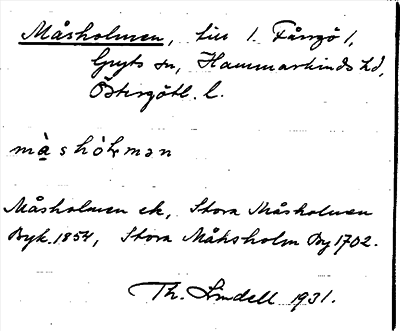 Måsholmen, till 1 Fångö 1,
Gryts sn, Hammarkinds hd,
Östergötl. l.
màshòlmən
Måsholmen ek, Stora Måsholmen
Byk. 1854, Stora Måhsholm By 1702.
Th. Lindell 1931.